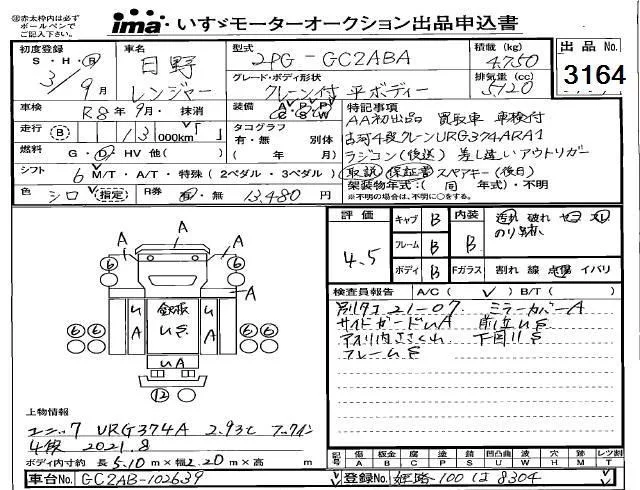 ㊟赤太枠内は必ず
ボールペンで
ご記入下さい。
ima いすゞモーターオークション出品申込書
初度登録
S・H・Ⓡ
3/9月
車名
日野
レンジャー
型式
2PG-GC2ABA
グレード・ボディ形状
クレーン付 平ボディー
積載(kg)
4,750
排気量(cc)
5,120
出品No.
3164
車検
R8年9月・抹消
装備 A/C P/S P/W
走行 Ⓑ
13 000km
タコグラフ
有・無 別体
(年 月)
燃料
G・Ⓓ HV 他( )
シフト
6 M/T・A/T・特殊(2ペダル・3ペダル)
色
シロ (指定)
R券
有・無
13,480円
特記事項
AA初出品 買取車 車検付
古河4段クレーンURG374ARA1
ラジコン(後送) 差し違いアウトリガー
取説 保証書 スペアキー(後日)
架装物年式:(同 年式)・不明
※不明の場合は、不明に〇をする。
評価
4.5
キャブ B
フレーム B
ボディ B
内装
B
汚れ 破れ
Fガラス
割れ 線 点傷 イバリ
検査員報告 A/C( ∨ ) B/T( )
21-07 ミラーカバーA
サイドガード
A
A
A
A
⑥
⑥
⑥⑥
⑥⑥
⑫
上物情報
URG374A 2.93t フックイン
4段 2021.8
ボディ内寸約 長5.10m×幅2.20m×高 m
記号 傷 板金 腐 塗 錆 凹 凸凹曲 波 穴 跡 レツ割
A B C P S U W H M T
車台No. GC2AB-102639
登録No. 姫路 100 は 8304